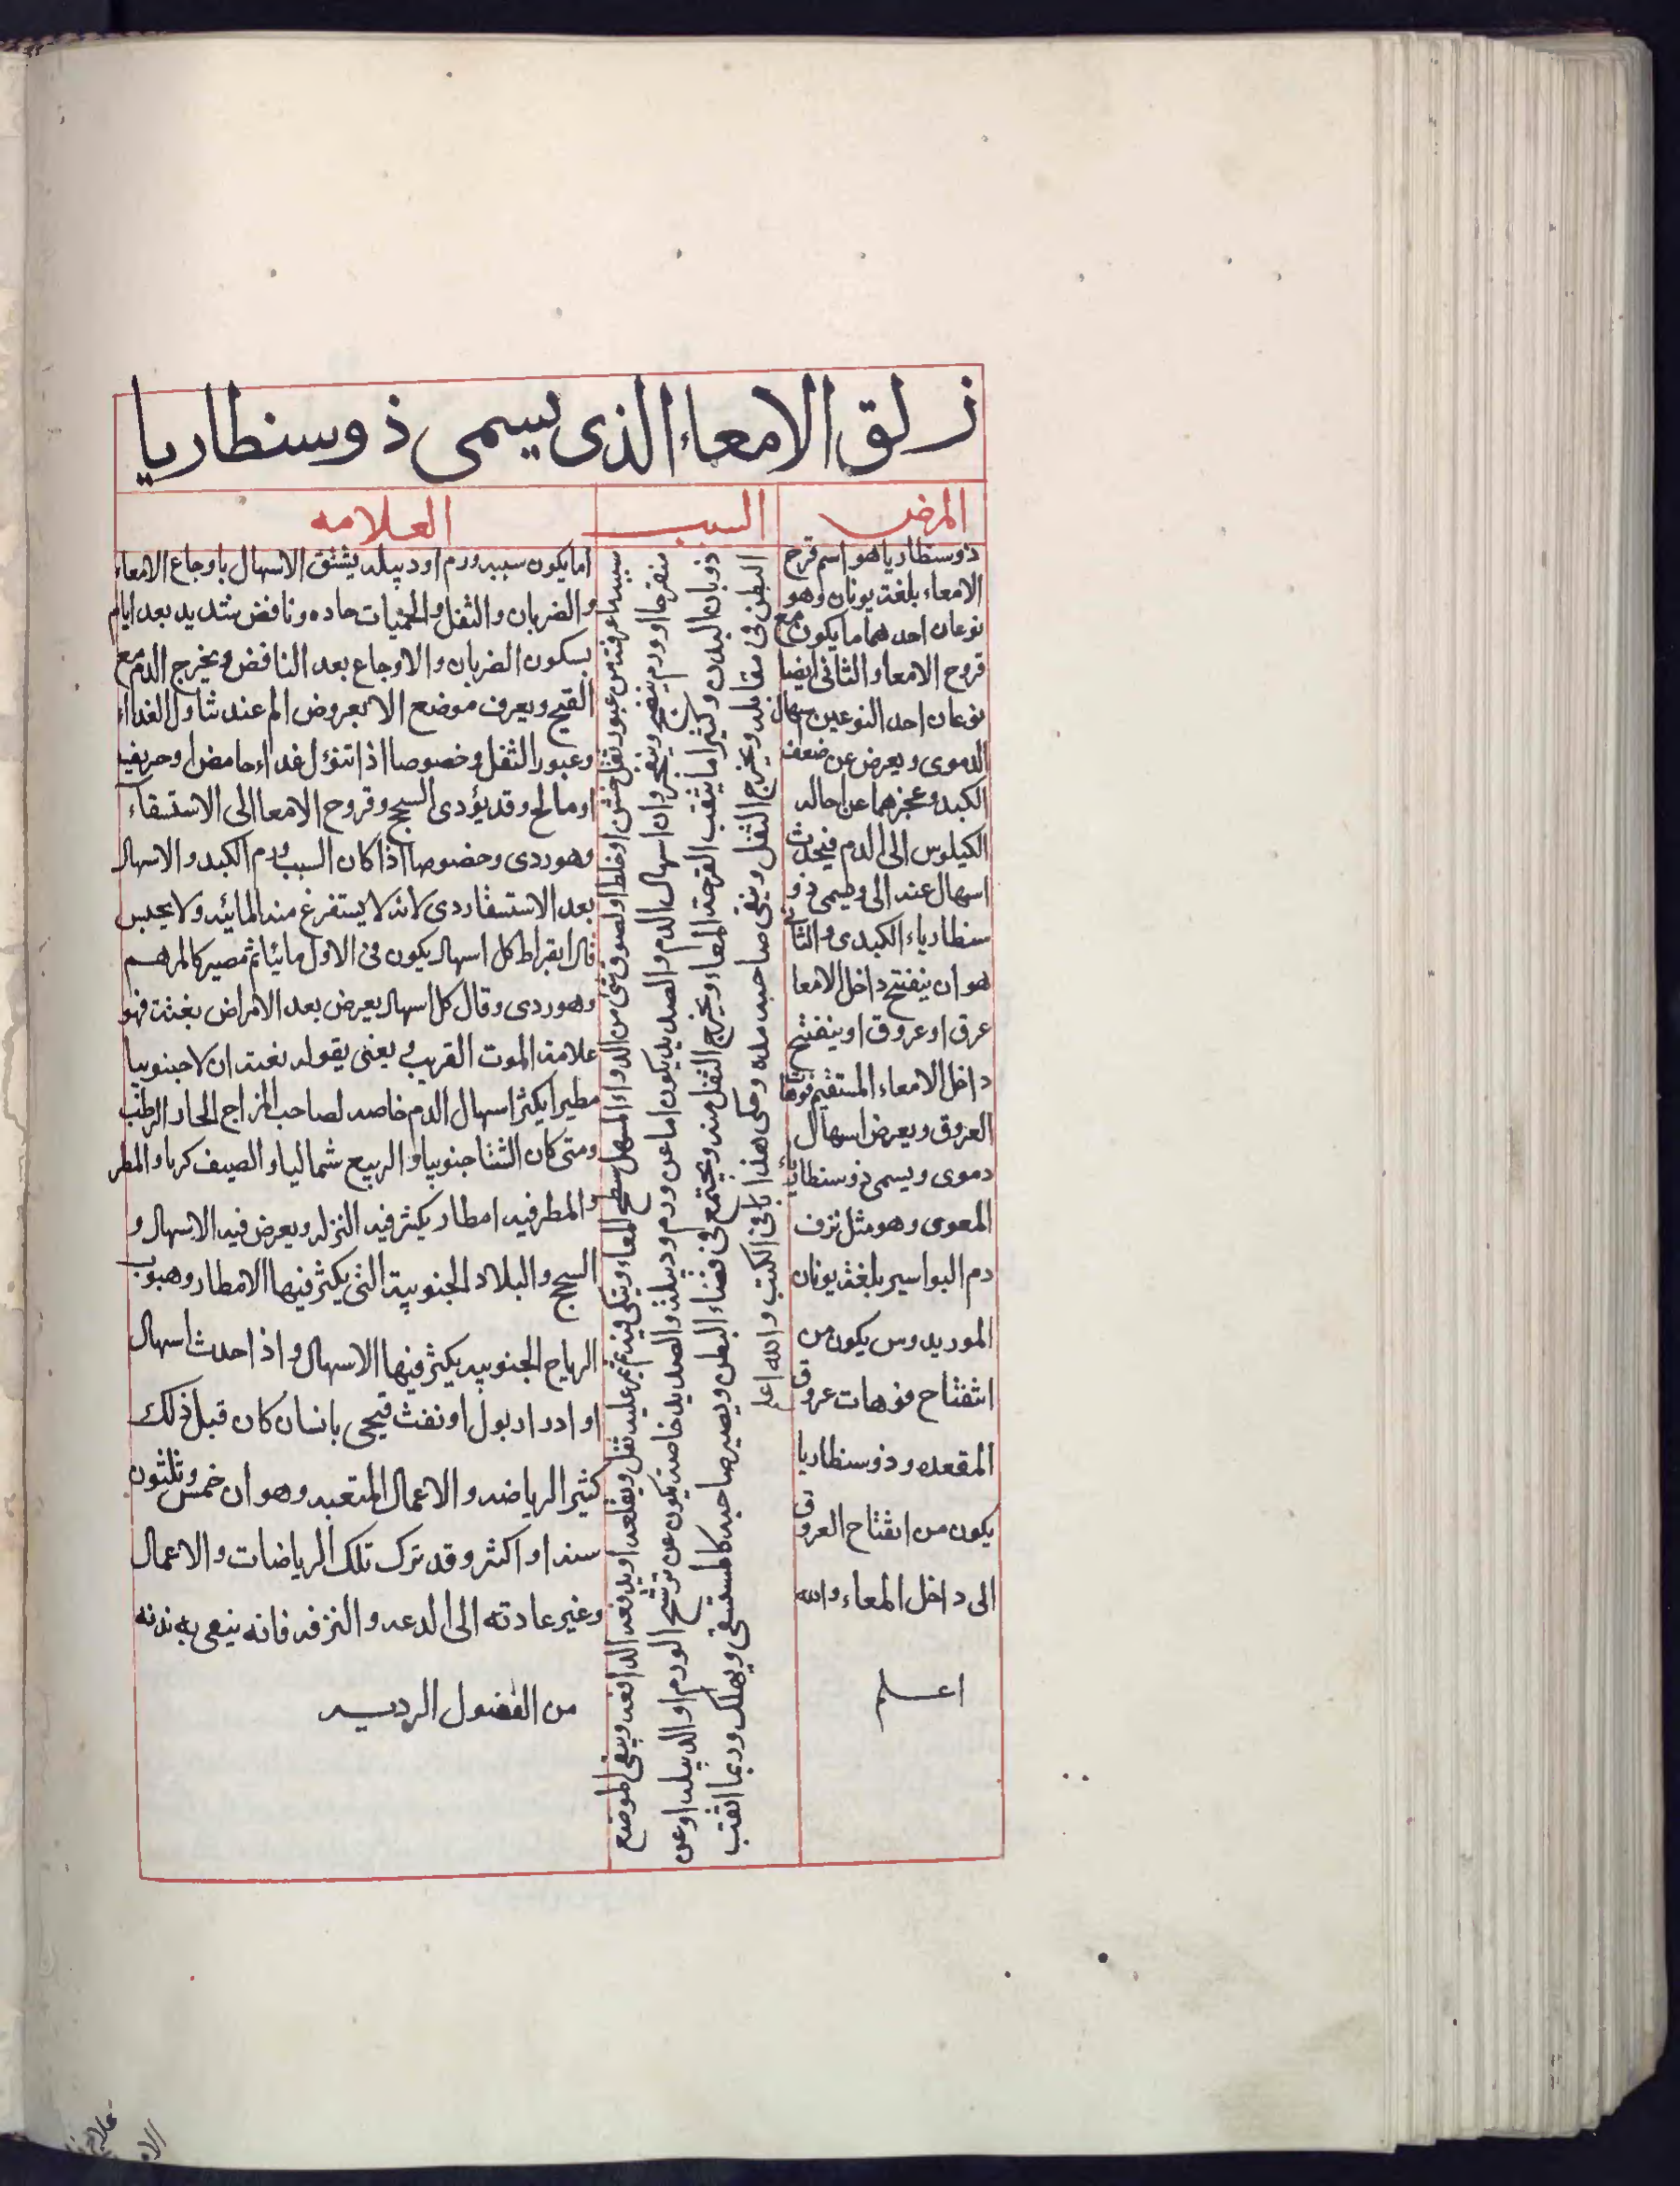 زلق الامعاء الذى يسمى ذوسنطاريا
المرض
السبب
العلامه
ذوسنطاريا هو اسم قرح
الامعاء بلغت يونان وهو
نوعان احدهما ما يكون مع
قروح الامعا والثانى ايضا
نوعان احد النوعين اسهال
الدموى ويعرض عن ضعف
الكبد وعجزهما عن احاله
الكيلوس الى الدم فيحدث
اسهال عندالى ويسمى ذو
سنطارياء الكبدى والثانى
هو ان ينفتح داخل الامعا
عرق او عروق او ينفتح
داخل الامعاء المستقيم فوهات
العروق ويعرض اسهال
دموى ويسمى ذوسنطارياء
المعوى وهو مثل نزف
دم البواسير بلغت يونان
الموريدوس يكون من
انفتاح فوهات عروق
المقعده وذوسنطاريا
يكون من انفتاح العروق
الى داخل المعاء والله
اعلم
سببه ما عرفته من عبور ثفل خشن او خلط او لصوق شئ من الدواء المسهل سطح المعاء وينكى فيه ثم يمر عليه ثفل ويقلعه او يدفعه الدافعه ويبقى الموضع
متقرحا او ورم ينضج وينفجر وان اسهال الدم والصديد يكون اما عن ورم ودبيلة والصديد خاصه يكون عن ترشح الورم او الدبيله او عن
ذوبان البدن وكثيرا ما يثقب القرحة المعاء ويخرج الثفل منه ويجتمع فى فضاء البطن ويصير صاحبه كالمستسقى ويهلك وربما انثقب
البطن فى مقابله ويخرج الثفل ويبقى صاحبه مده وحكى هذا باقى الكتب والله اعلم
اما يكون سببه ورم او دبيله يشتق الاسهال باوجاع الامعاء
والضربان والثقل والحميات حاده ونافض شديد بعد ايام
بسكون الضربان والاوجاع بعد النافض ويخرج الدم مع
القيح ويعرف موضع الا بعروض الم عند تناول الغداء
وعبور الثفل وخصوصا اذا تنوول غداء حامض او حريفيه
او مالح وقد يؤدى السحج وقروح الامعا الى الاستسقاء
وهو ردى وخصوصا اذا كان السبب ورم الكبد والاسهال
بعد الاستسقا ردى لانه لا يستفرغ منه المائيه ولا يحبس
قال ابقراط كل اسهال يكون فى الاول مائيا ثم مصير كالمرهم
وهو ردى وقال كل اسهال يعرض بعد الامراض بغتت فهو
علامت الموت القريب يعنى بقوله بغتت ان لا جنوبيا
مطيرا يكثر اسهال الدم خاصه لصاحب المزاج الحار الرطب
ومتى كان الشتا جنوبيا والربيع شماليا والصيف كربا والمطر
والمطر فيه امطار يكثر فيه النزله ويعرض فيه الاسهال و
السحج والبلاد الجنوبية التى يكثر فيها الامطار وهبوب
الرياح الجنوبيه يكثر فيها الاسهال واذا حدث اسهال
او ادرار بول او نفث قيحى بانسان كان قبل ذلك
كثير الرياضه والاعمال المتعبه وهو ان خمس وثلثون
سنه او اكثر وقد ترك تلك الرياضات والاعمال
وغير عادته الى الدعه والترفه فانه ينعى به بدنه
من الفضول الرديه